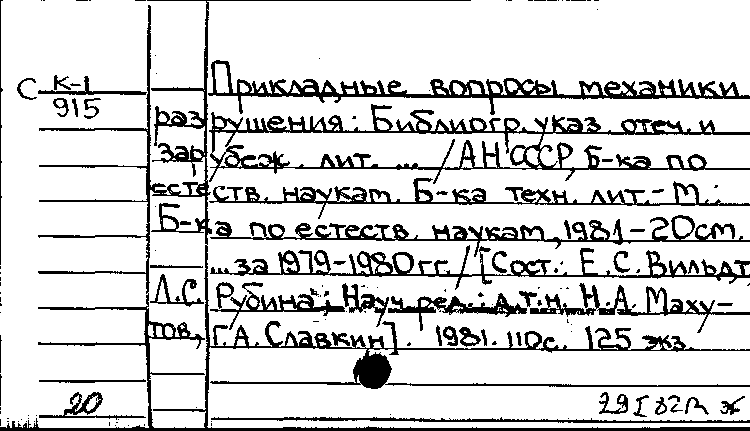 С К-1
915
Прикладные вопросы механики
разрушения: Библиогр. указ. отеч. и
зарубеж. лит. ... / АН СССР, Б-ка по
естеств. наукам. Б-ка техн. лит. - М.:
Б-ка по естеств. наукам, 1981 - 20 см.
... за 1979-1980 гг. / [Сост.: Е.С. Вильдт,
Л.С. Рубина; Науч. ред.: д.т.н. Н.А. Маху-
тов, Г.А. Славкин]. 1981. 110 с. 125 экз.
20